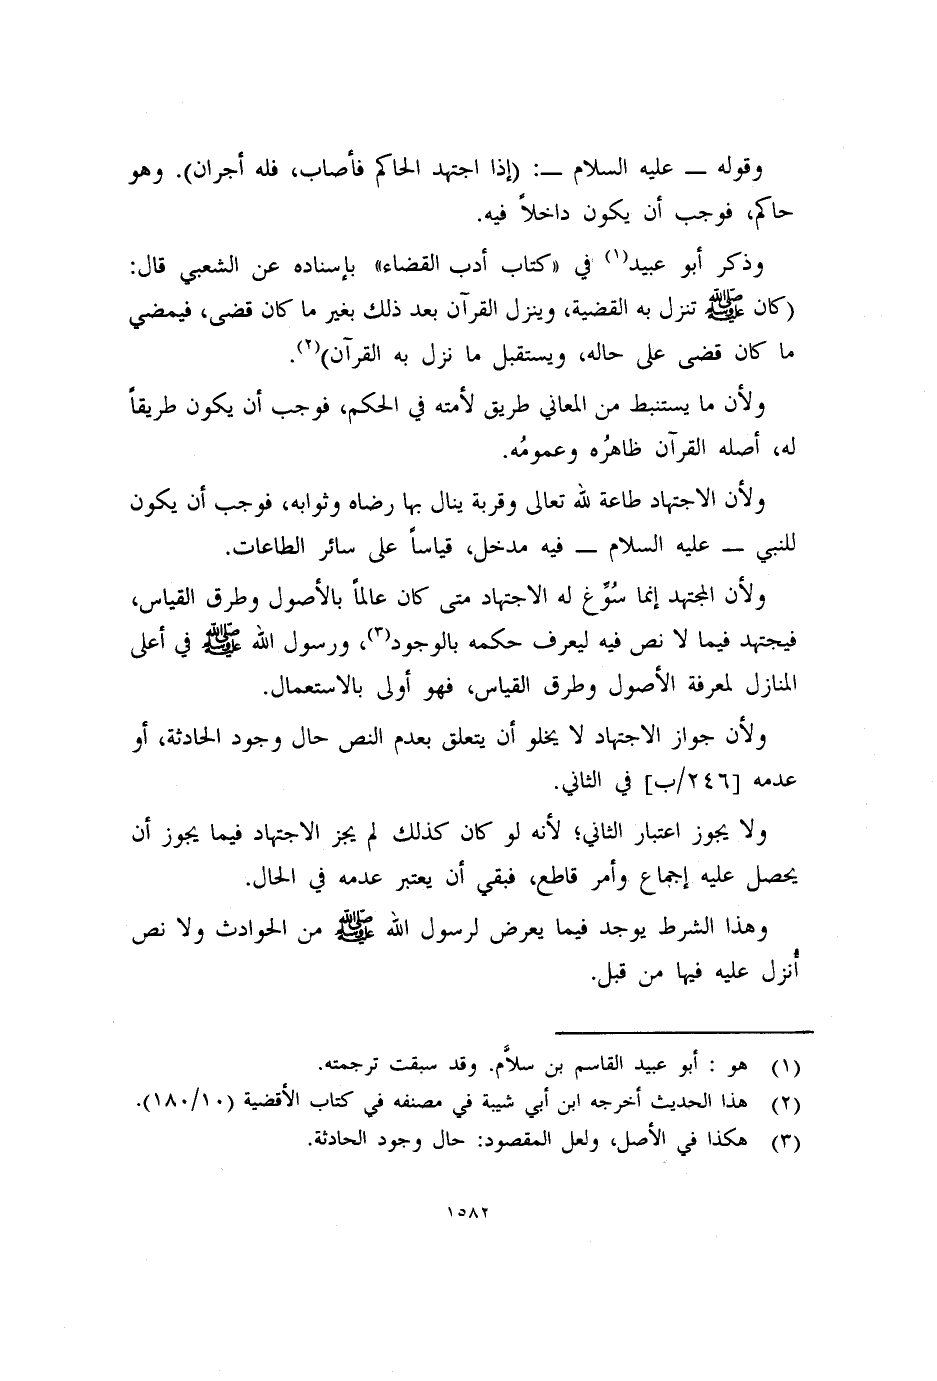 وقوله ــ عليه السلام ــ: (إذا اجتهد الحاكم فأصاب، فله أجران). وهو
حاكم، فوجب أن يكون داخلاً فيه.
وذكر أبو عبيد(١) في «كتاب أدب القضاء» بإسناده عن الشعبي قال:
(كان ﷺ تنزل به القضية، وينزل القرآن بعد ذلك بغير ما كان قضى، فيمضي
ما كان قضى على حاله، ويستقبل ما نزل به القرآن)(٢).
ولأن ما يستنبط من المعاني طريق لأمته في الحكم، فوجب أن يكون طريقاً
له، أصله القرآن ظاهرُه وعمومُه.
ولأن الاجتهاد طاعة لله تعالى وقربة ينال بها رضاه وثوابه، فوجب أن يكون
للنبي ــ عليه السلام ــ فيه مدخل، قياساً على سائر الطاعات.
ولأن المجتهد إنما سُوِّغ له الاجتهاد متى كان عالماً بالأصول وطرق القياس،
فيجتهد فيما لا نص فيه ليعرف حكمه بالوجود(٣)، ورسول الله ﷺ في أعلى
المنازل لمعرفة الأصول وطرق القياس، فهو أولى بالاستعمال.
ولأن جواز الاجتهاد لا يخلو أن يتعلق بعدم النص حال وجود الحادثة، أو
عدمه [٢٤٦/ب] في الثاني.
ولا يجوز اعتبار الثاني؛ لأنه لو كان كذلك لم يجز الاجتهاد فيما يجوز أن
يحصل عليه إجماع وأمر قاطع، فبقي أن يعتبر عدمه في الحال.
وهذا الشرط يوجد فيما يعرض لرسول الله ﷺ من الحوادث ولا نص
أُنزل عليه فيها من قبل.
(١) هو : أبو عبيد القاسم بن سلاَّم. وقد سبقت ترجمته.
(٢) هذا الحديث أخرجه ابن أبي شيبة في مصنفه في كتاب الأقضية (١٨٠/١٠).
(٣) هكذا في الأصل، ولعل المقصود: حال وجود الحادثة.
١٥٨٢